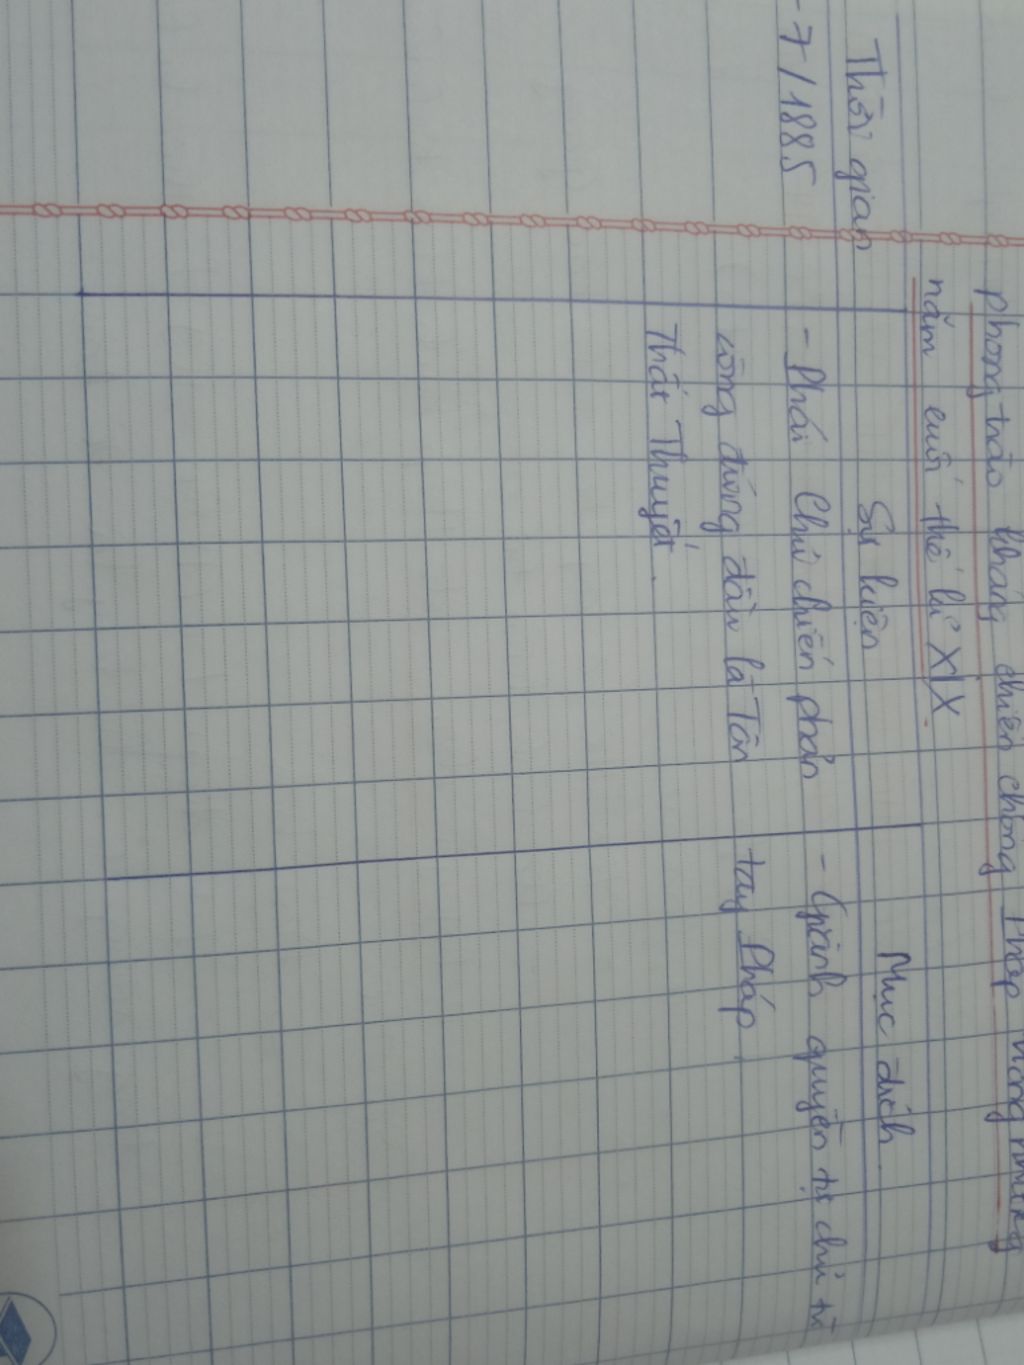 phong trào kháng chiến chống Pháp trong những
năm cuối thế kỉ XIX.
Thời gian
Sự kiện
Mục đích.
- 7/1885
- Phái Chủ chiến phản
công đứng đầu là Tôn
Thất Thuyết.
- Giành quyền tự chủ từ
tay Pháp.